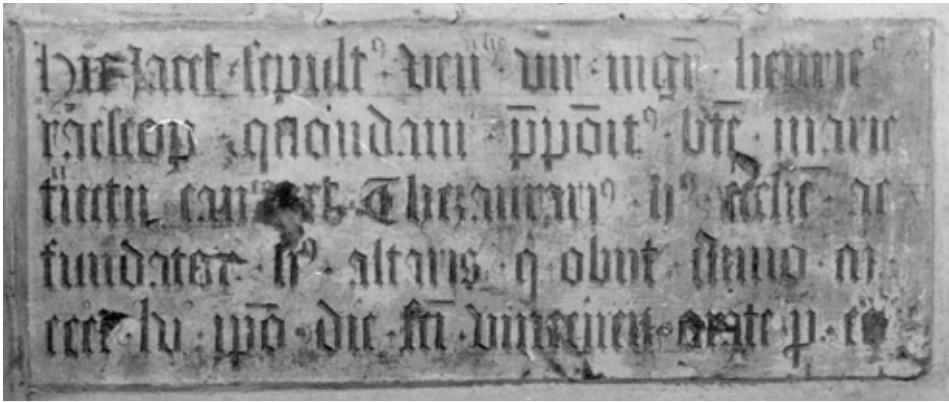 Hic Jacet sepult⁹ ven̄ᶦˡⁱˢ vir mgr̄ henric⁹
raescop quondam p̄pōit⁹ bt̄e marie
Thezaurari⁹ h⁹ eccl̄ie ac
fundator h⁹ altaris q̇ obiit Anno m
cccc lv ip̄o die sc̄i vincencii orate p eo